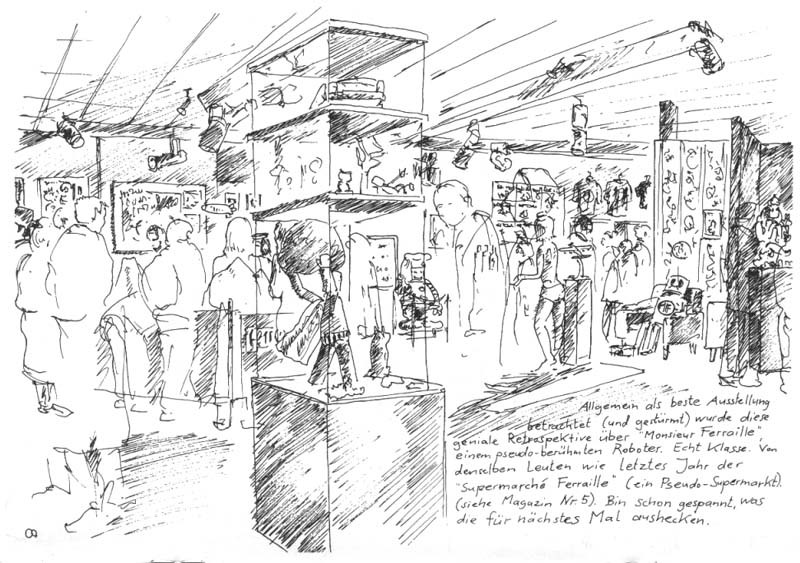 Allgemein als beste Ausstellung
betrachtet (und gestürmt) wurde diese
geniale Retrospektive über "Monsieur Ferraille",
einem pseudo-berühmten Roboter. Echt Klasse. Von
denselben Leuten wie letztes Jahr der
"Supermarché Ferraille" (ein Pseudo-Supermarkt).
(siehe Magazin Nr. 5). Bin schon gespannt, was
die für nächstes Mal aushecken.
8